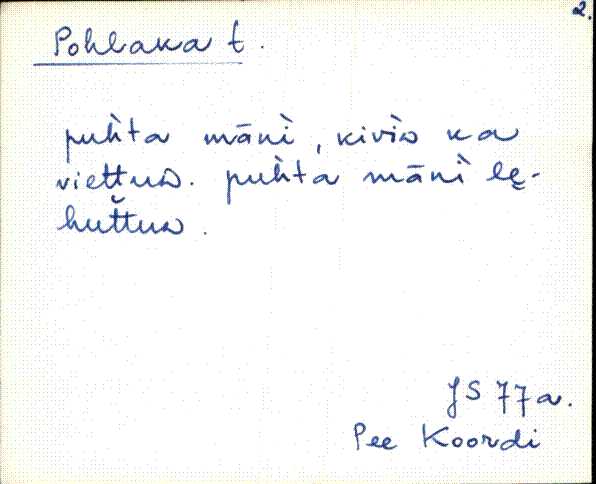 2.
Pohlaka t.
puhta māni, kivis ka
viettus. puhta māni lę-
huťtus.
JS 77a.
Pee Koordi